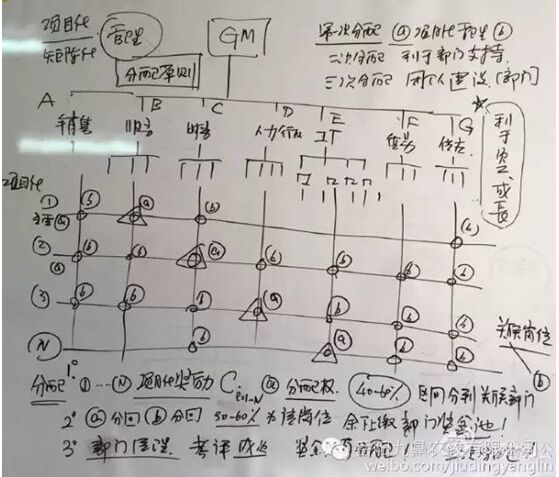 项目化 管理
矩阵化
GM
第一次分配 ⓐ项目化管理ⓑ
二次分配 利于部门支持.
三次分配 团队建设.(部门)
分配原则
A B C D E F G
销售 财务 人力行政 IT
利于员工成长
项目化
①
主导ⓐ
②
ⓐ
③
Ⓝ
ⓑ ⓐ ⓑ ⓑ
ⓑ ⓑ ⓐ ⓑ ⓑ ⓑ ⓑ
ⓑ ⓑ ⓑ ⓐ ⓑ ⓑ ⓑ
ⓑ ⓐ ⓑ ⓑ
关联岗位
ⓑ
分配: 1° ①…Ⓝ 项目化奖励 ⓐ分配权. 40-60% 区间分到关联部门
2° ⓐ分回ⓑ分回 50-60% 为该岗位 余下缴部门奖金池!
3° 部门管理. 考评 奖金再分配!
weibo.com/jiudingyanglin